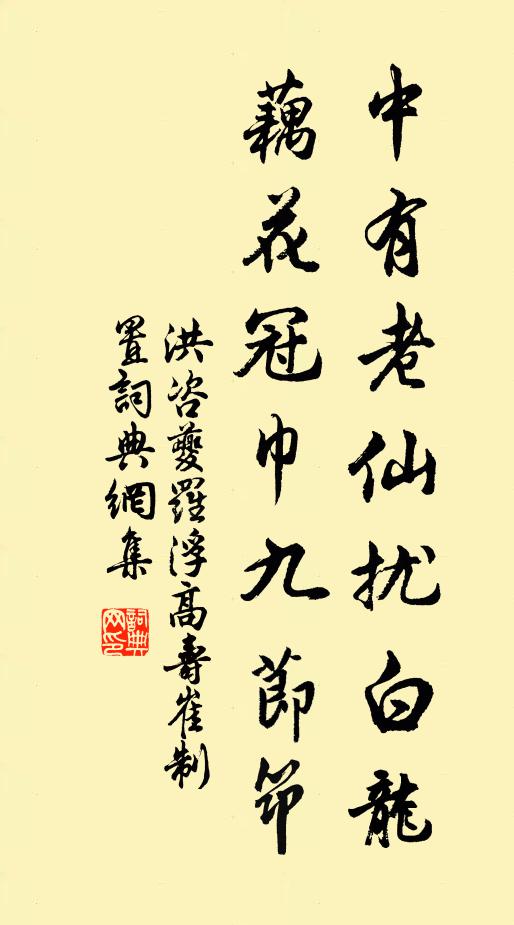 中有老仙扰白龍
藕花冠巾九節笻
洪咨夔羅浮高壽崔制
置詞典網集
詞典网印